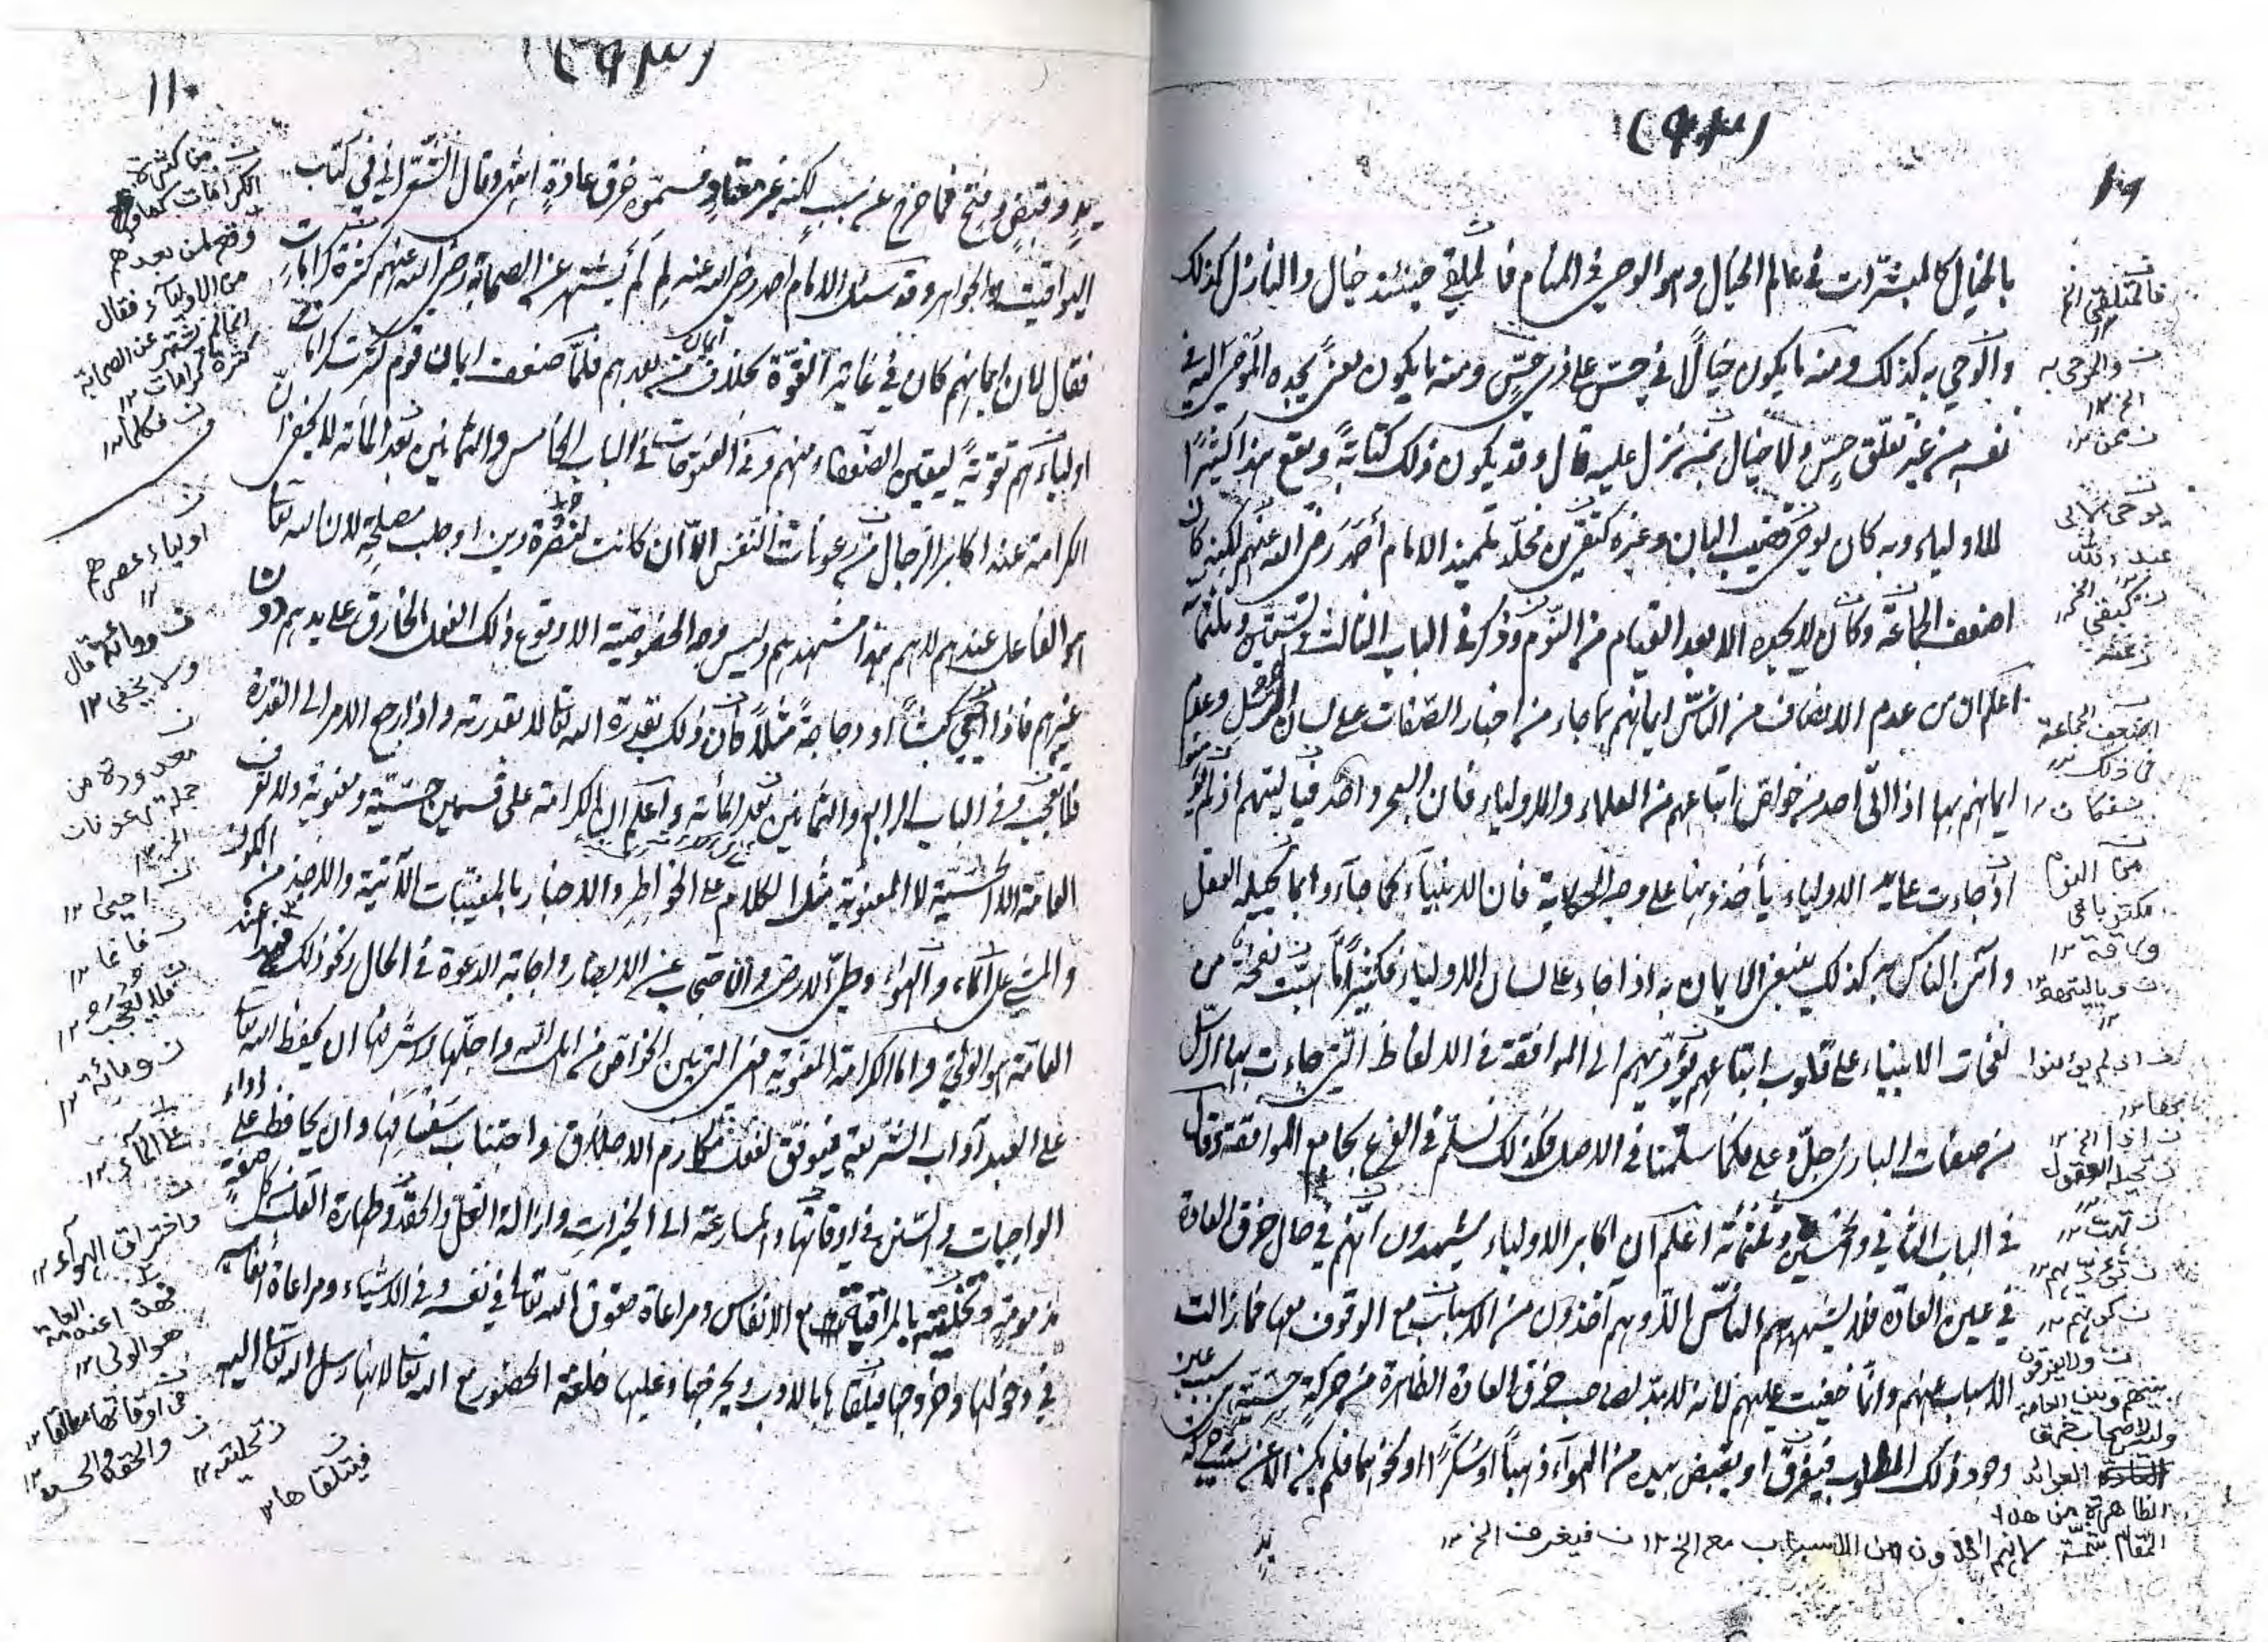 بالخيال كالمبشرات في عالم الخيال وهو الوحي في المنام فالملقي حينئذ خيال والنازل كذلك
والوحي به كذلك ومنه ما يكون خيالاً في حسّ على ذي حسّ ومنه ما يكون معنى يجده الموحى اليه في
نفسه من غير تعلق حسّ ولا خيال بمن نزل عليه قال وقد يكون ذلك كتابةً ويقع هذا كثيرًا
للاولياء وبه كان يوحى لقضيب البان وغيره كبقي بن مخلّد تلميذ الامام أحمد رضي الله عنهم لكنه كان
اضعف الجماعة وكان لا يجده الا بعد القيام من النوم وذكر في الباب الثالث
اعلم ان من عدم الانصاف من الناس ايمانهم بما جاء من اخبار الصفات على لسان الرسل وعدم
ايمانهم بها اذا اتى احد من خواصّ اتباعهم من العلماء والاولياء فان البحر واحد فيا ليتهم اذ لم يؤمنوا
اذ جاءت على يد الاولياء يأخذونها على وجه الحكاية فان الانبياء كما جاؤا بما يحيله العقل
وآمن الناس به كذلك ينبغي الايمان به اذا جاء على لسان الاولياء فكثيرًا ما هبّت نفحة من
نفحات الانبياء على قلوب اتباعهم تؤدّيهم الى الموافقة في الالفاظ التي جاءت بها الرسل
من صفات الباري جلّ وعلى فكما سلّمنا في الاصل فكذلك نسلّم في الفرع بجامع الموافقة وقال
في الباب الثاني والخمسين وثلثمائة اعلم ان اكابر الاولياء يشهدون انهم في حال خرق العادة
في عين العادة فلا يشهدهم الناس الا وهم آخذون من الاسباب مع الوقوف معها فما زالت
الاسباب عنهم وانما خفيت عليهم لانه لا بدّ لصاحب خرق العادة الظاهرة من حركة حسّية هي سبب عين
وجود ذلك المطلوب فيغرف او يقبض بيده من الهواء ذهبًا او سُكّرًا او نحوهما فلم يكن الا عن سبب حركة
يدٍ
فالمتلقي الخ
والموحى به
الخ ١٢
ممن ١٢
كبقي الخ
اضعف الجماعة
في ذلك
من النوم
اذا الخ ١٢
يحيله العقول
هبت ١٢
ولا يفرقون
بينهم وبين العامة
العوائد
الظاهرة من هذا
المقام
لانهم آخذون من الاسباب مع الخ ١٢ فيغرف الخ ١٢
١١٠
يدٍ وقبضٍ وفتح فما خرج عن سبب لكنه غير معتادٍ فسمّوه خرق عادةٍ انتهى وقال الشّعراني في كتاب
اليواقيت والجواهر وقد سئل الامام أحمد رضي الله عنه لِمَ لَمْ يشتهر عن الصحابة رضي الله عنهم كثرة كرامات
فقال لان ايمانهم كان في غاية القوّة بخلاف من بعدهم فلمّا ضعف ايمان قوم كثرت كرامات
اوليائهم تقويةً ليقين الضعفاء منهم وفي الفتوحات في الباب الخامس والثمانين بعد المائة لا يخفى ان
الكرامة عند اكابر الرجال من رعونات النفس الا ان كانت لنصرة دين او جلب مصلحةٍ لان الله تعالى
هو الفاعل عندهم لا هم هذا مشهدهم وليس وجه الخصوصية الا وقوع ذلك الفعل الخارق على يديهم دون
غيرهم فاذا أحيي كبشًا او دجاجةً مثلاً كان ذلك بقدرة الله تعالى لا بقدرته واذا رجع الامر الى القدرة
فلا تعجّب وفي الباب الرابع والثمانين بعد المائة واعلم ان الكرامة على قسمين حسّيّة ومعنوية ولا تعرف
العامّة الا الحسّية لا المعنوية مثل الكلام على الخواطر والاخبار بالمغيّبات الآتية والاخذ من الكون
والمشي على الماء والهواء وطيّ الارض والاحتجاب عن الابصار واجابة الدعوة في الحال ونحو ذلك فهذا عند
العامّة هو الولي واما الكرامة المعنوية فهي التي بين الخواصّ من اهل الله واجلّها واشرفها ان يحفظ الله تعالى
على العبد آداب الشريعة فيوفّق لفعل مكارم الاخلاق واجتناب سفسافها وان يحافظ على اداء
الواجبات والسنن في اوقاتها والمسارعة الى الخيرات وازالة الغلّ والحقد وطهارة القلب من كل صفةٍ
مذمومةٍ وتحليته بالمراقبة مع الانفاس ومراعاة حقوق الله تعالى في نفسه وفي الاشياء ومراعاة أنفاسه
في دخولها وخروجها فيتلقاها بالادب ويخرجها وعليها خلعة الحضور مع الله تعالى لانها رسل الله تعالى اليه
من كثرة
الكرامات كما
وقع لمن بعدهم
من الاولياء فقال
انما لم يشتهر عن الصحابة
كثرة كرامات ١٢
فكلما ١٢
اولياء عصرهم
ولا يخفى ١٢
معدودة من
جملة رعونات
الخ ١٢
احيى ١٢
فلا تعجب ١٢
ومائة ١٢
على الماء ١٢
واختراق الهواء ١٢
فهذا عند العامة
هو الولي ١٢
في اوقاتها مطلقا ١٢
والحقد والحسد ١٢
تحليته ١٢
فيتلقاها ١٢